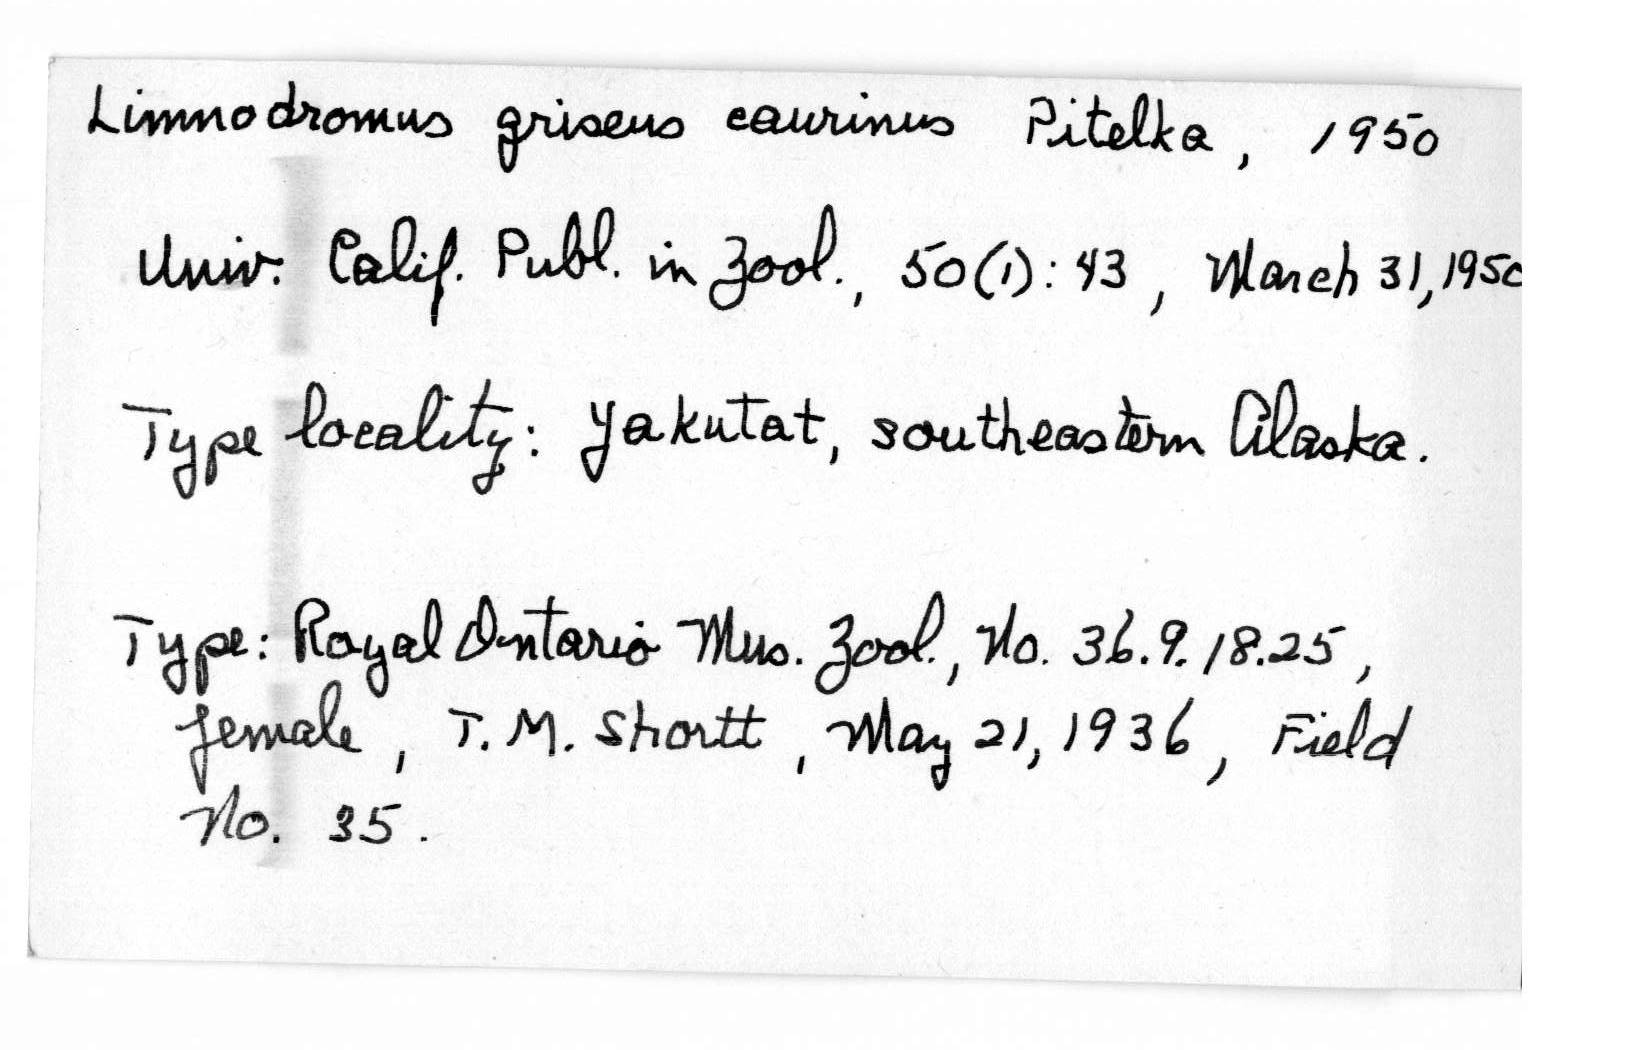 Limnodromus griseus caurinus Pitelka, 1950
Univ. Calif. Publ. in Zool., 50(1): 43, March 31, 1950
Type locality: Yakutat, southeastern Alaska.
Type: Royal Ontario Mus. Zool., No. 36.9.18.25,
female, T. M. Shortt, May 21, 1936, Field
No. 35.